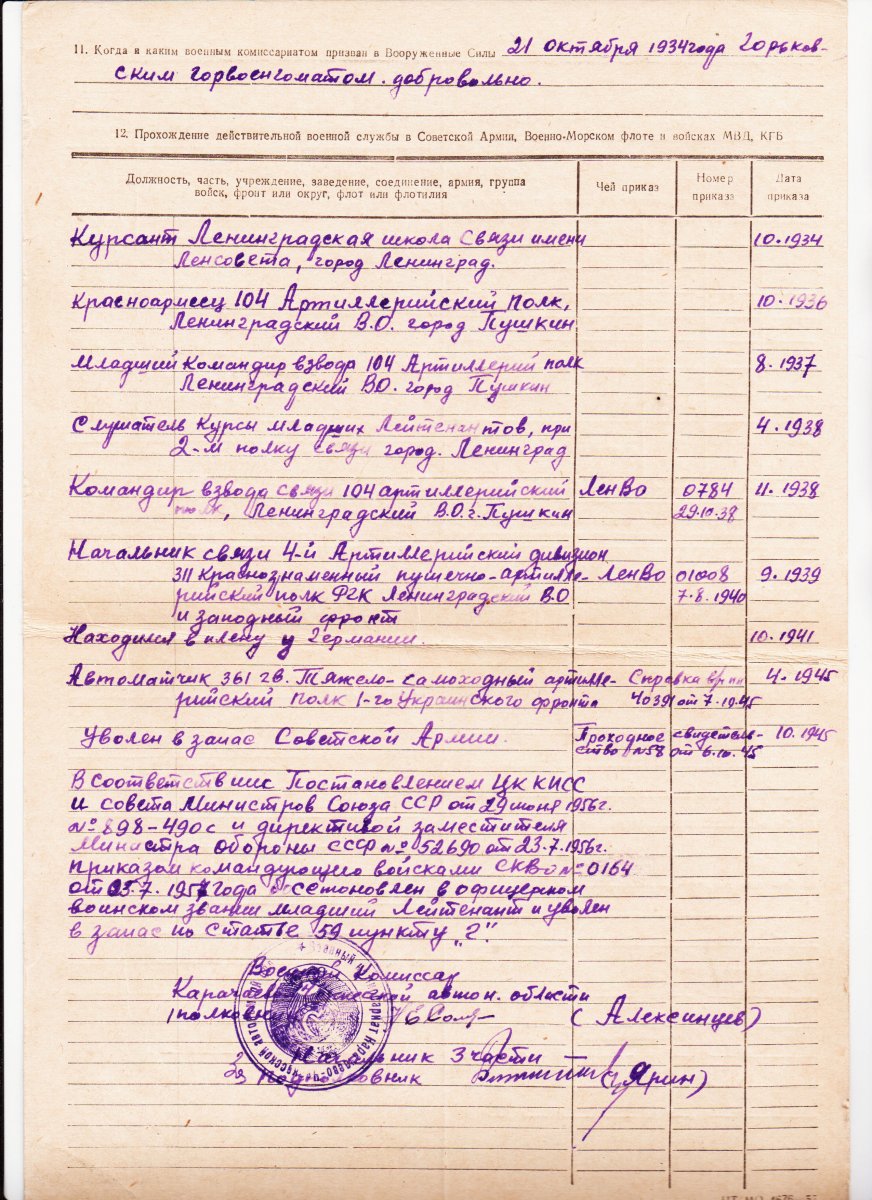 11. Когда и каким военным комиссариатом призван в Вооруженные Силы 21 октября 1934 года Горьков-
ским горвоенкоматом. добровольно.
12. Прохождение действительной военной службы в Советской Армии, Военно-Морском флоте и войсках МВД, КГБ
Должность, часть, учреждение, заведение, соединение, армия, группа войск, фронт или округ, флот или флотилия
Чей приказ
Номер приказа
Дата приказа
Курсант Ленинградская школа Связи имени 10.1934
Ленсовета, город Ленинград.
Красноармеец 104 Артиллерийский полк, 10.1936
Ленинградский В.О. город Пушкин
Младший Командир взвода 104 Артиллерий полк 8.1937
Ленинградский В.О. город Пушкин
Слушатель Курсы младших Лейтенантов, при 4.1938
2-м полку связи город. Ленинград
Командир взвода связи 104 артиллерийский ЛенВо 0784 11.1938
полк, Ленинградский В.О. г. Пушкин 29.10.38
Начальник связи 4-й Артиллерийский дивизион
311 Краснознаменный пушечно-артилле- ЛенВо 01008 9.1939
рийский полк РГК Ленинградский В.О 7.8.1940
и западный фронт
Находился в плену у Германии. 10.1941
Автоматчик 361 гв. Тяжело-самоходный артилле- Справка 4.1945
рийский полк 1-го Украинского фронта 40391 от 7.10.45
Уволен в запас Советской Армии. Проходное свидетель- 10.1945
ство №58 от 6.10.45
В соответствиис Постановлением ЦК КПСС
и совета Министров Союза ССР от 29 июня 1956г.
№ 898-490с и директивой заместителя
Министра обороны СССР № 52690 от 23.7.1956г.
приказом командующего войсками СКВо № 0164
от 1957 года восстановлен в офицерном
воинском звании младший Лейтенант и уволен
в запас по статье 59 пункту „г".
Военный Комиссар
Карачаево-Черкесской автон. области
полковник (Алексинцев)
Начальник 3 части
подполковник (Ярин)